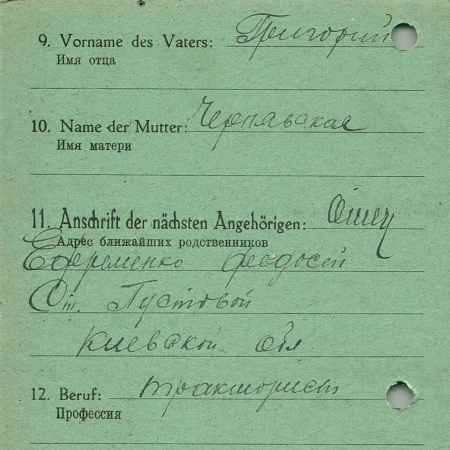 9. Vorname des Vaters: Григорий
Имя отца
10. Name der Mutter: Чернявская
Имя матери
11. Anschrift der nächsten Angehörigen: Отец
Адрес ближайших родственников
Ефременко Федосей
Ст. Пустовой
Киевской обл
12. Beruf: тракторист
Профессия